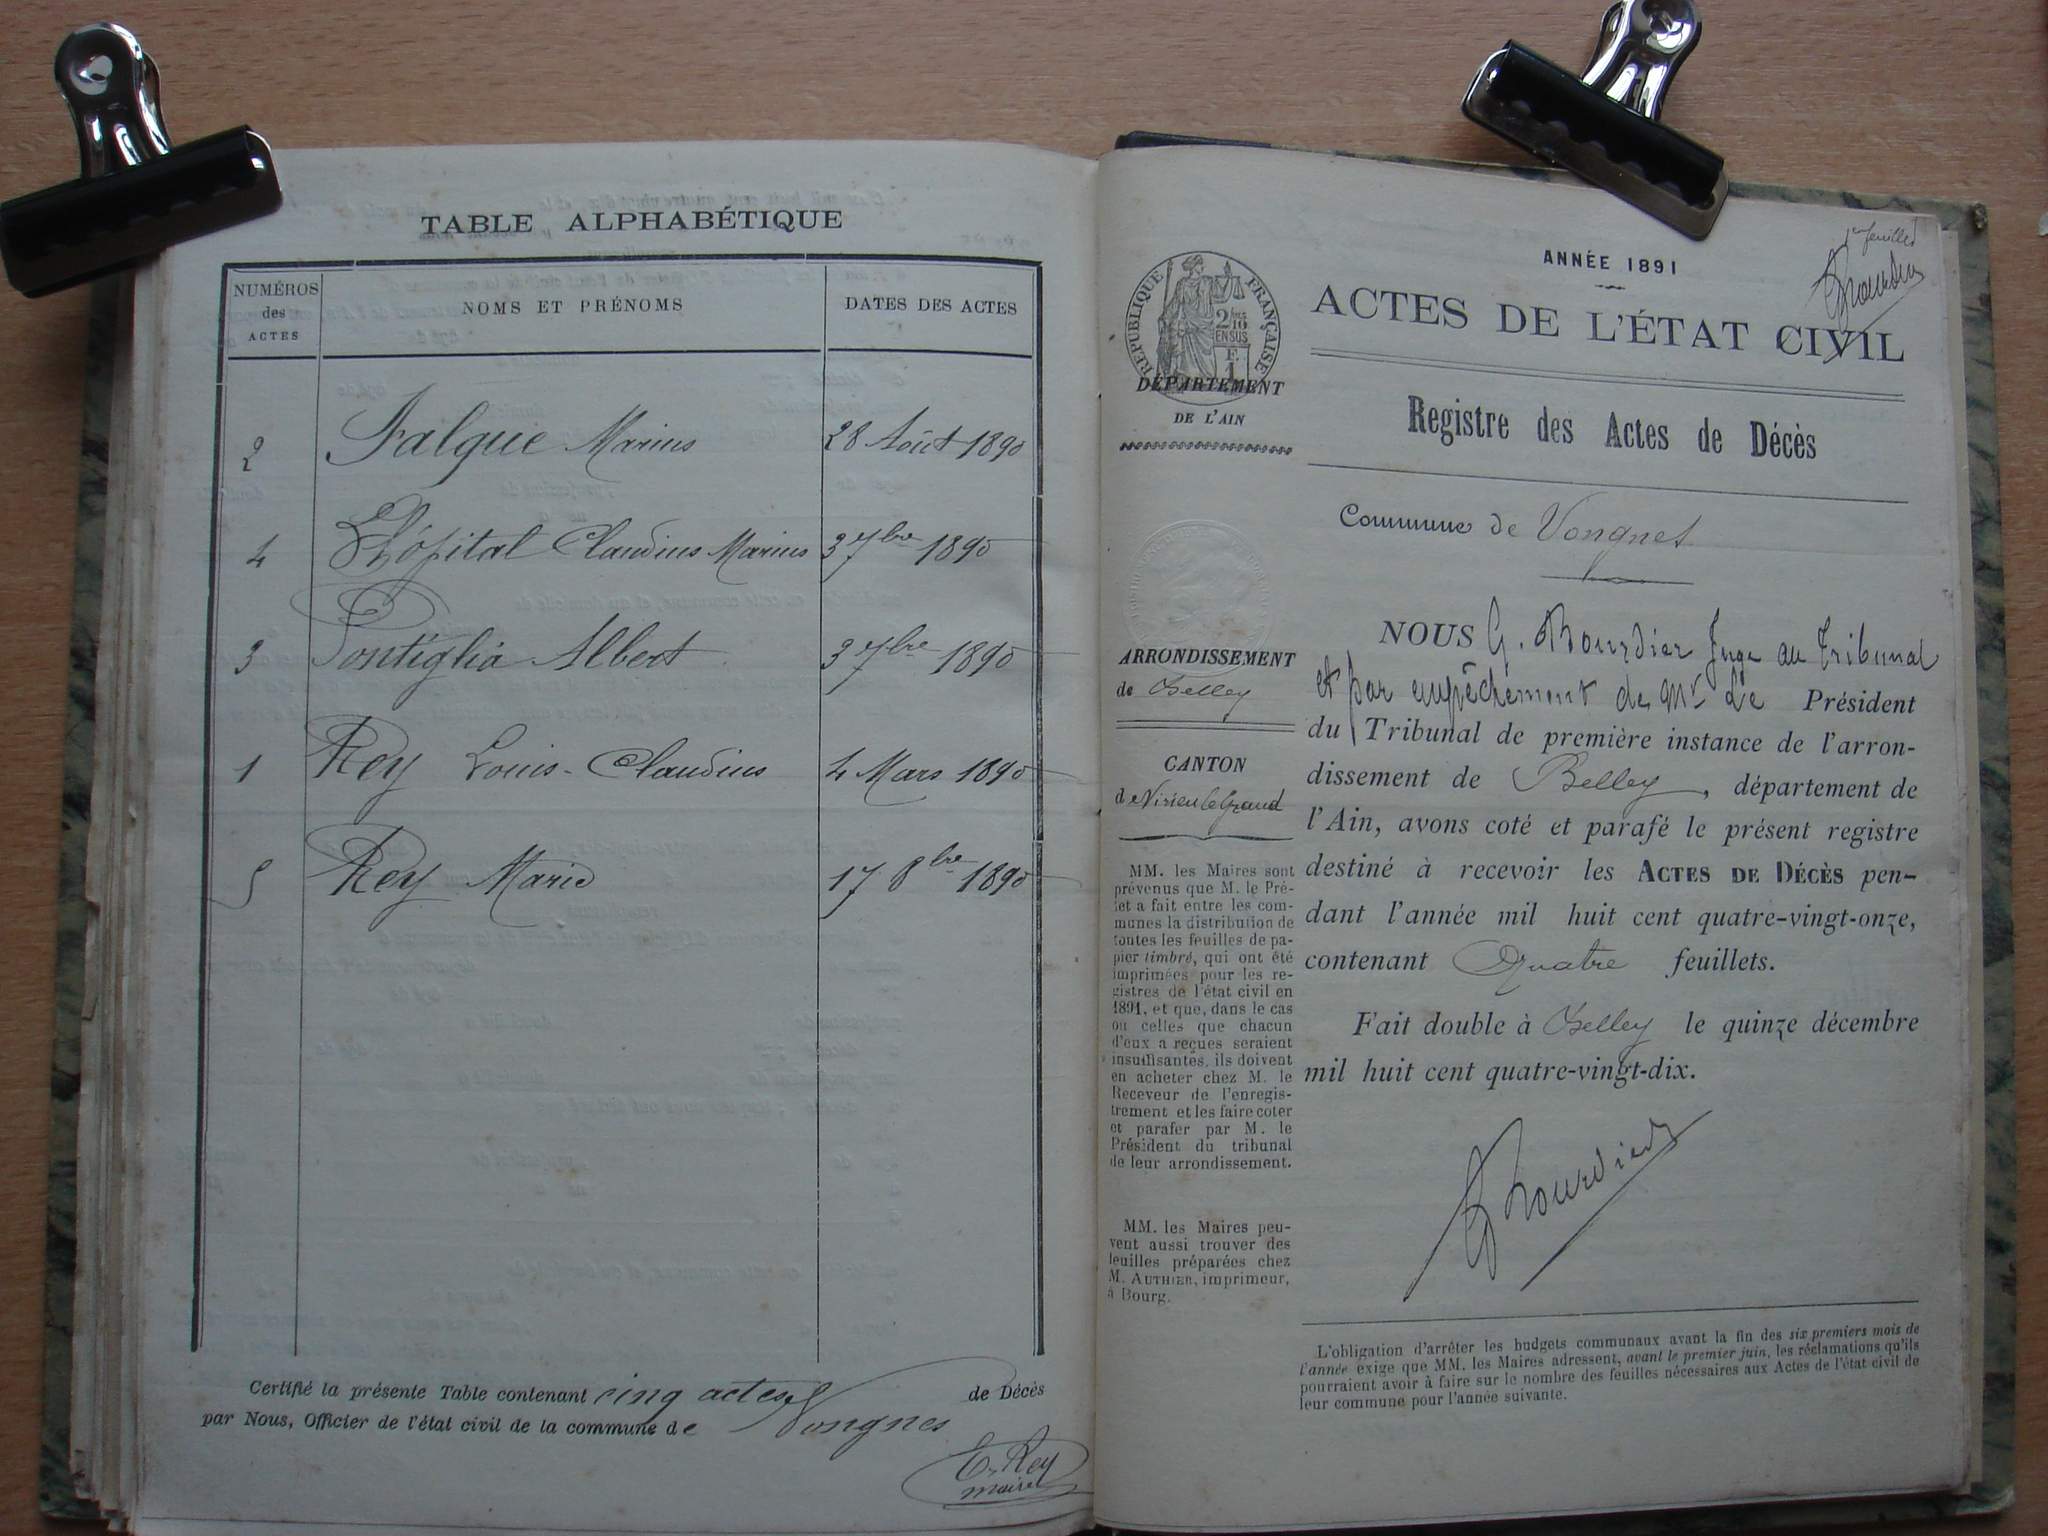 TABLE ALPHABÉTIQUE
NUMÉROS des ACTES NOMS ET PRÉNOMS DATES DES ACTES
2 Falque Marius 28 Août 1890
4 Lhôpital Claudius Marius 3 7bre 1890
3 Pontiglia Albert 3 7bre 1890
1 Rey Louis-Claudius 4 Mars 1890
5 Rey Marie 17 8bre 1890
Certifié la présente Table contenant cinq actes de Décès
par Nous, Officier de l'état civil de la commune de Vongnes
E. Rey
maire
1er feuillet
Bourdier
ANNÉE 1891
ACTES DE L'ÉTAT CIVIL
RÉPUBLIQUE FRANÇAISE
2/10
EN SUS
F.
1
DÉPARTEMENT
DE L'AIN
Registre des Actes de Décès
Commune de Vongnes
ARRONDISSEMENT
de Belley
CANTON
de Virieu le Grand
MM. les Maires sont
prévenus que M. le Pré-
fet a fait entre les com-
munes la distribution de
toutes les feuilles de pa-
pier timbré, qui ont été
imprimées pour les re-
gistres de l'état civil en
1891, et que, dans le cas
où celles que chacun
d'eux a reçues seraient
insuffisantes, ils doivent
en acheter chez M. le
Receveur de l'enregis-
trement et les faire coter
et parafer par M. le
Président du tribunal
de leur arrondissement.
MM. les Maires peu-
vent aussi trouver des
feuilles préparées chez
M. AUTHIER, imprimeur,
à Bourg.
NOUS G. Bourdier Juge au Tribunal
et par empêchement de Mr Le Président
du Tribunal de première instance de l'arron-
dissement de Belley, département de
l'Ain, avons coté et parafé le présent registre
destiné à recevoir les ACTES DE DÉCÈS pen-
dant l'année mil huit cent quatre-vingt-onze,
contenant Quatre feuillets.
Fait double à Belley le quinze décembre
mil huit cent quatre-vingt-dix.
Bourdier
L'obligation d'arrêter les budgets communaux avant la fin des six premiers mois de
l'année exige que MM. les Maires adressent, avant le premier juin, les réclamations qu'ils
pourraient avoir à faire sur le nombre des feuilles nécessaires aux Actes de l'état civil de
leur commune pour l'année suivante.